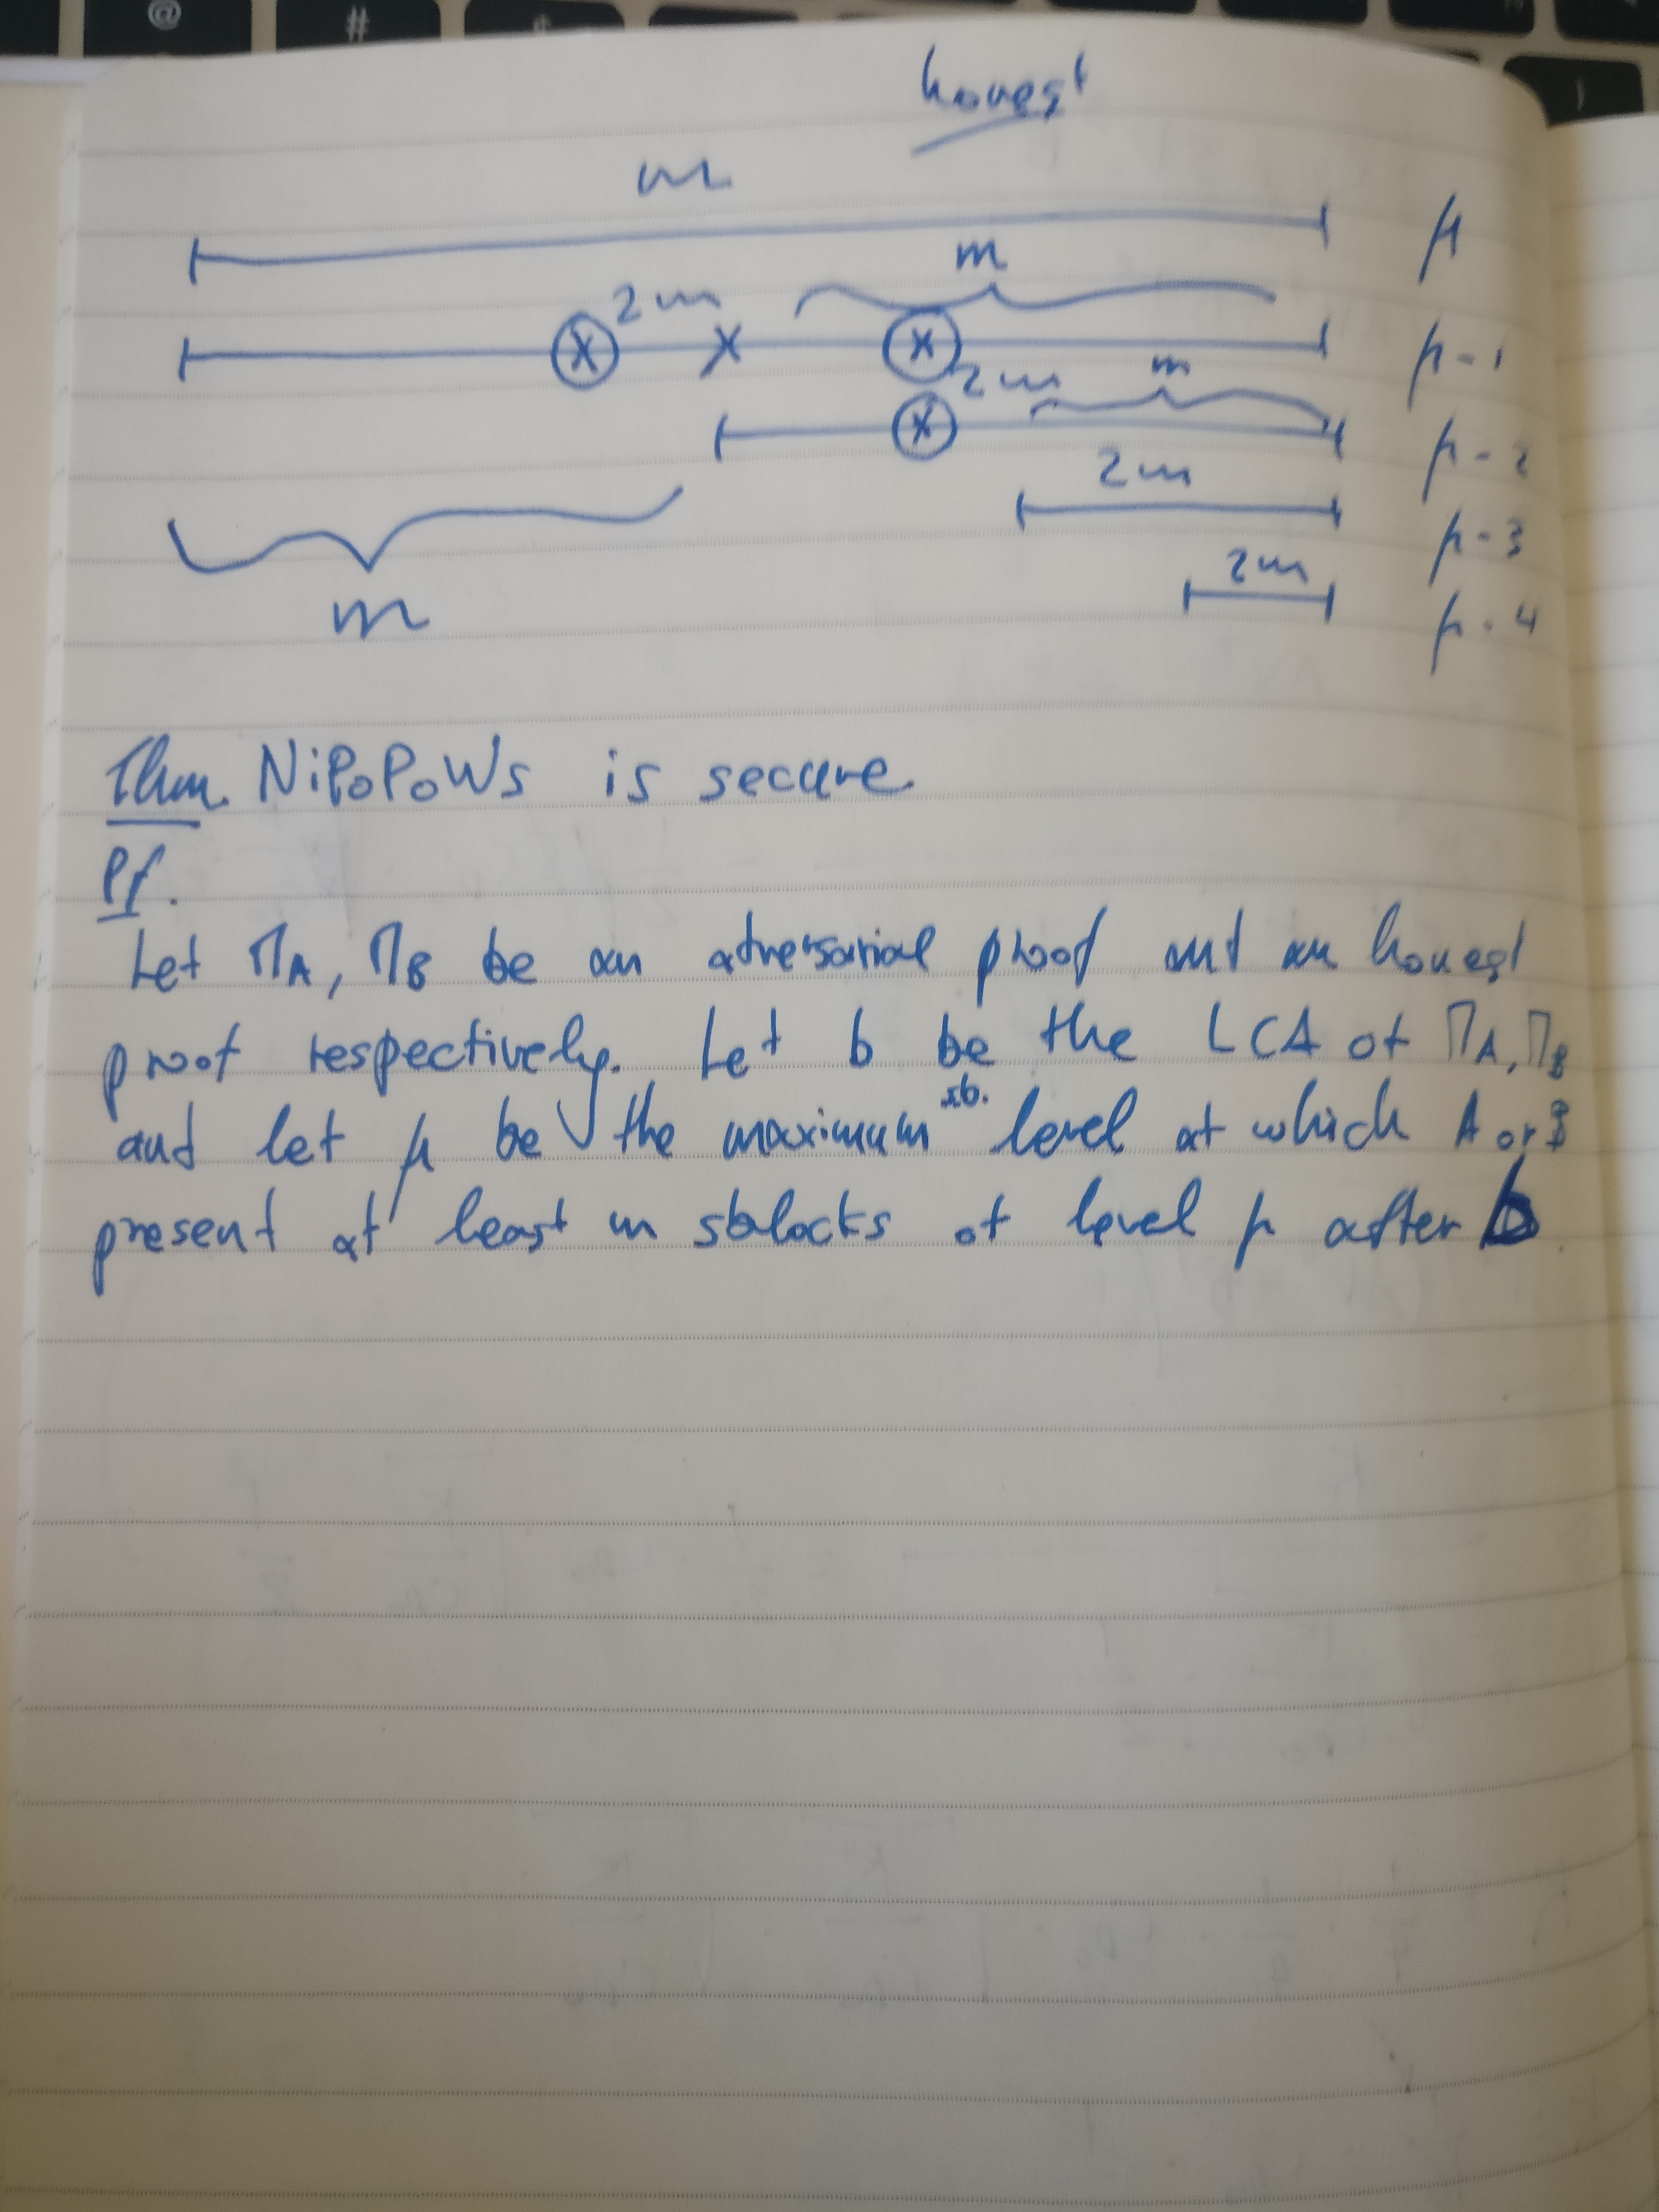 @ #
honest
m
μ
m
2m
μ-1
2m m
μ-2
2m
μ-3
2m
μ-4
m
Thm. NiPoPoWs is secure.
Pf.
Let ΠA, ΠB be an adversarial proof and an honest
proof respectively. Let b be the LCA of ΠA, ΠB
sb.
and let μ be the maximum level at which A or B
present at least m sblocks of level μ after b.